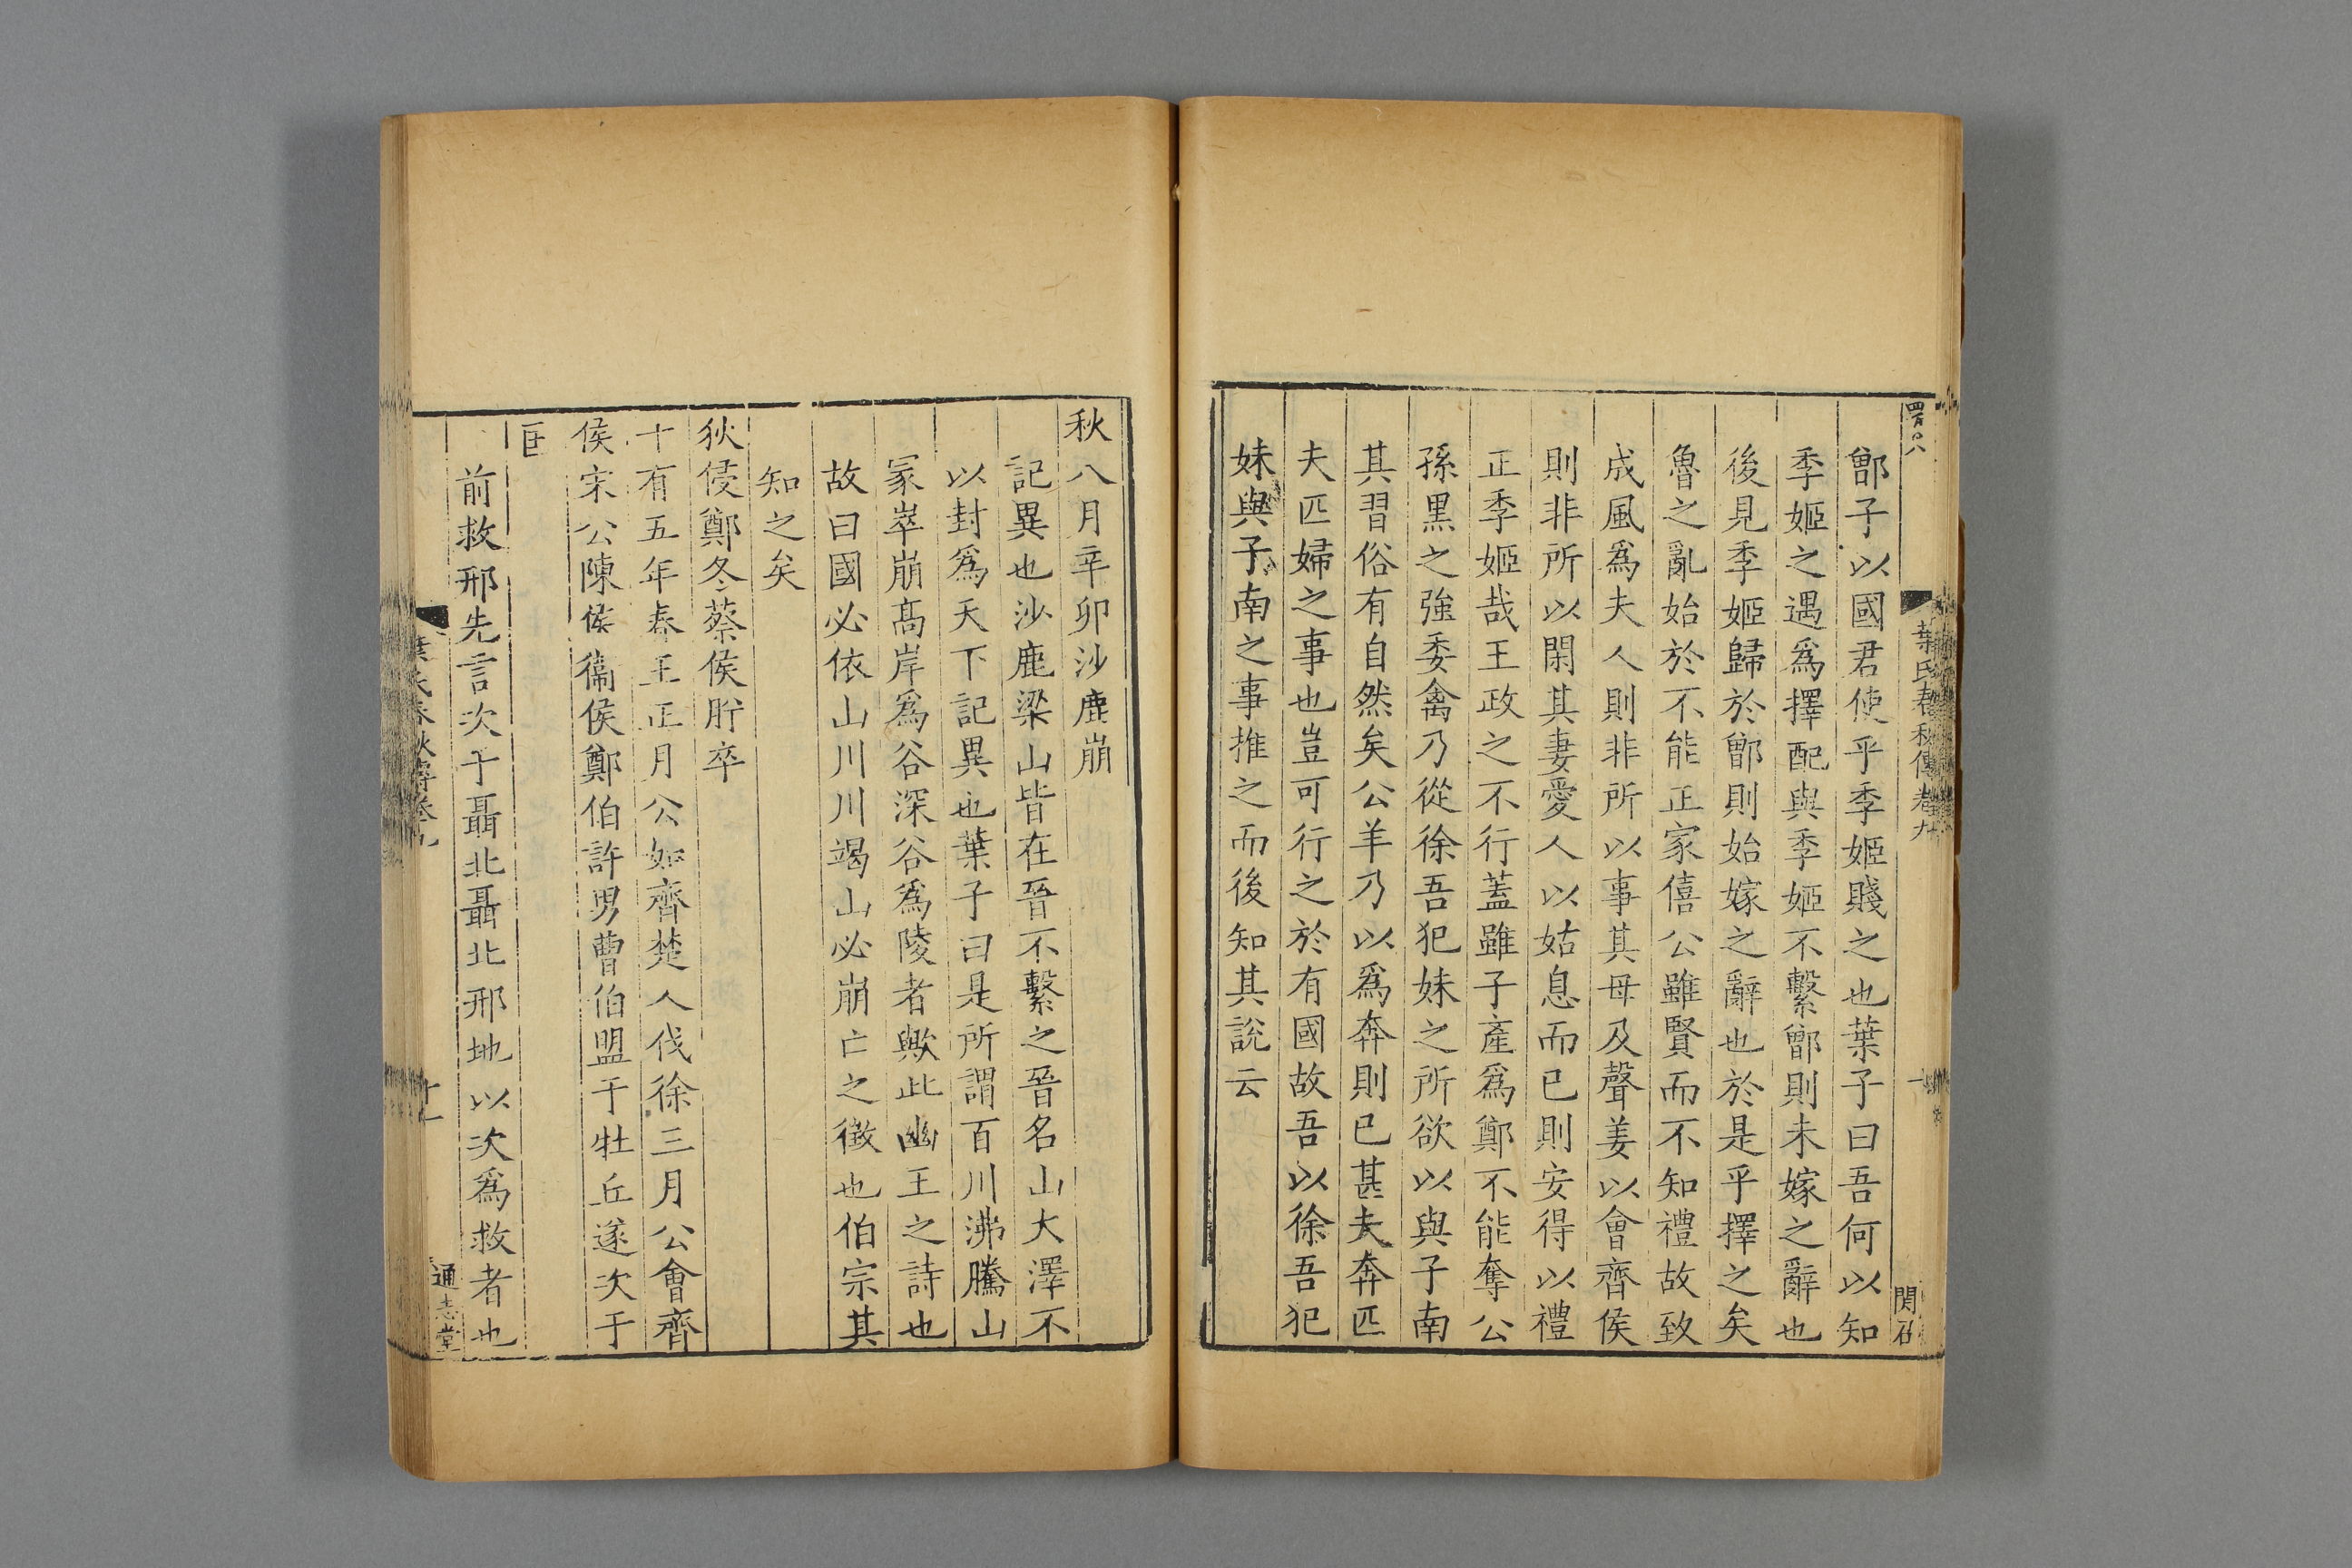 葉氏春秋傳卷九
閔召
鄫子以國君使乎季姬賤之也葉子曰吾何以知
季姬之遇爲擇配與季姬不繫鄫則未嫁之辭也
後見季姬歸於鄫則始嫁之辭也於是乎擇之矣
魯之亂始於不能正家僖公雖賢而不知禮故致
成風爲夫人則非所以事其母及聲姜以會齊侯
則非所以閑其妻愛人以姑息而已則安得以禮
正季姬哉王政之不行蓋雖子產爲鄭不能奪公
孫黑之強委禽乃從徐吾犯妹之所欲以與子南
其習俗有自然矣公羊乃以爲奔則已甚夫奔匹
夫匹婦之事也豈可行之於有國故吾以徐吾犯
妹與子南之事推之而後知其說云
秋八月辛卯沙鹿崩
記異也沙鹿梁山皆在晉不繫之晉名山大澤不
以封爲天下記異也葉子曰是所謂百川沸騰山
冢崒崩髙岸爲谷深谷爲陵者歟此幽王之詩也
故曰國必依山川川竭山必崩亡之徵也伯宗其
知之矣
狄侵鄭冬蔡侯肸卒
十有五年春王正月公如齊楚人伐徐三月公會齊
侯宋公陳侯衞侯鄭伯許男曹伯盟于牡丘遂次于
匡
前救邢先言次于聶北聶北邢地以次爲救者也
葉氏春秋傳卷九
十一
通志堂